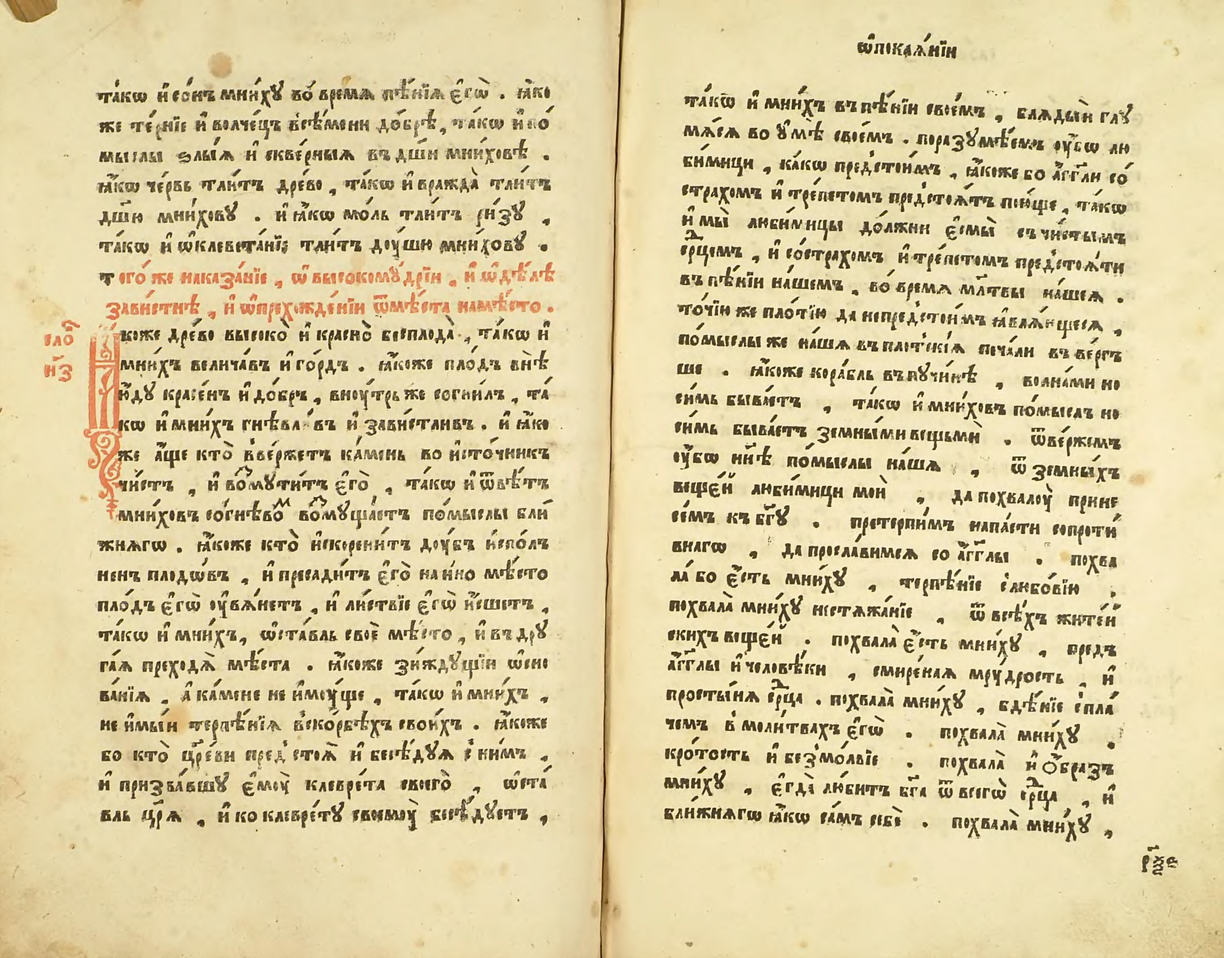 та́кѡ и҆ со́нъ мни́хꙋ во́ время пѣ́нїѧ є҆гѡ̀ . ꙗ҆́ко
же те́рнїе и҆ волче́цъ всѣ́мени до́брѣ , та́кѡ и҆ по́
мыслы ѕлы́ѧ и҆ скве́рныѧ въ дш҃и мни́ховѣ .
ꙗ҆́кѡ че́рвь тли́тъ дре́во , та́кѡ и҆ вражда̀ тли́тъ
дш҃ю мни́ховꙋ . и҆ ꙗ҆́кѡ мо́ль тли́тъ ри́зꙋ ,
та́кѡ и҆ ѡ҆клевета́нїе тли́тъ доу́шю мни́ховꙋ .
тогѡ́ же наказа́нїе , ѡ҆ высокомꙋ́дрїи , и҆ ѡ҆ дѣ́лѣ
зави́стнѣ , и҆ ѡ҆ прехожде́нїи ѿмѣ́ста намѣ́сто .
сло́
н҃з
Ꙗ҆́коже дре́во высоко̀ и҆ красно̀ бесплода̀ , та́кѡ и҆
мни́хъ велича́въ и҆ го́рдъ . ꙗ҆́коже пло́дъ внѣ̀
ѿ́дꙋ красе́нъ и҆ до́бръ , вноу́трь же согни́лъ , та́
кѡ и҆ мни́хъ гнѣвли́въ и҆ зави́стливъ . и҆ ꙗ҆́ко
же а҆́ще кто̀ вве́ржетъ ка́мень во и҆сто́чникъ
чи́стъ , и҆ возмꙋти́тъ є҆го̀ , та́кѡ и҆ ѿвѣ́тъ
мни́ховъ согнѣ́вомъ возмꙋща́етъ по́мыслы бли́
жнѧгѡ . ꙗ҆́коже кто̀ и҆скорени́тъ доу́бъ и҆спо́лъ
ненъ плодѡ́въ , и҆ пресади́тъ є҆го̀ на и҆но мѣ́сто
пло́дъ є҆гѡ̀ оу҆вѧ́нетъ , и҆ ли́ствїе є҆гѡ̀ и҆́сшетъ ,
та́кѡ и҆ мни́хъ , ѡ҆ста́вль своѐ мѣ́сто , и҆ въ дрꙋ
га́ѧ преходѧ̀ мѣ́ста . ꙗ҆́коже зи́ждꙋщїи ѡ҆сно
ва́нїѧ , а҆ ка́мене не и҆мꙋ́ще , та́кѡ и҆ мни́хъ ,
не и҆мы́и терпѣ́нїѧ вско́рбѣхъ свои́хъ . ꙗ҆́коже
бо кто̀ цр҃е́ви пред̾ стоѧ̀ и҆ бесѣ́дꙋѧ сни́мъ ,
и҆ призва́вшꙋ є҆моу̀ клеврѐта своего̀ , ѡ҆ста́
вль цр҃ѧ̀ , и҆ ко клевре́тꙋ своемоу̀ бесѣ́дꙋетъ ,
ѡ҆покаѧ́нїи
та́кѡ и҆ мни́хъ въ пѣ́нїи свое́мъ , блѧды́и глꙋ
мѧ́сѧ во оу҆мѣ̀ свое́мъ . поразꙋмѣ́емъ оу҆̀бѡ лю
би́мици , ка́кѡ предстои́мъ , ꙗ҆́коже бо а҆́гг҃ли со́
страхомъ и҆ тре́петомъ предстоѧ́тъ пою́ще , та́кѡ
и҆ мы̀ люби́мицы до́лжни є҆смы̀ съ чи́стымъ
се́рцемъ , и҆ со́страхомъ и҆ тре́петомъ предстоѧ́ти
въ пѣ́нїи на́шемъ , во́ время мл҃твы на́шеѧ .
то́чїи же пло́тїю да не предстои́мъ ꙗ҆влѧ́ющесѧ ,
по́мыслы же на́шѧ въ пло́тскїѧ печа́ли въве́ргъ
ше . ꙗ҆́коже кора́бль въ пꙋчи́нѣ , волна́ми но
си́мь быва́етъ , та́кѡ и҆ мни́ховъ по́мыслъ но
си́мь быва́етъ земны́ми вещьмѝ . ѿве́ржемъ
оу҆̀бѡ нн҃ѣ по́мыслы на́шѧ , ѿ земны́хъ
веще́й люби́мици мои̑ , да похвалоу̀ прине
се́мъ къ бг҃ꙋ . прете́рпимъ напа́сти сопроти́
внагѡ , да просла́вимсѧ со а҆́гг҃лы . похва
ла́ бо є҆́сть мни́хꙋ , терпѣ́нїе слюбо́вїю .
похвала̀ мни́хꙋ нестѧжа́нїе , ѿ всѣ́хъ жите́й
скихъ веще́й . похвала̀ є҆́сть мни́хꙋ , предъ
а҆́гг҃лы и҆ человѣ́ки , смире́наѧ мꙋ́дрость , и҆
простынѧ̀ се́рца . похвала̀ мни́хꙋ , бдѣ́нїе спла́
чемъ в моли́твахъ є҆гѡ̀ . похвала̀ мни́хꙋ ,
кро́тость и҆ безмо́лвїе . похвала̀ и҆ ѻ҆́бразъ
мни́хꙋ , є҆гда̀ лю́битъ бг҃а ѿ всегѡ̀ се́рца , и҆
бли́жнѧгѡ ꙗ҆́кѡ са́мъ себѐ . похвала̀ мни́хꙋ ,